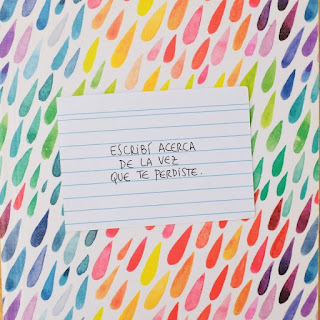 ESCRIBÍ ACERCA
DE LA VEZ
QUE TE PERDISTE.